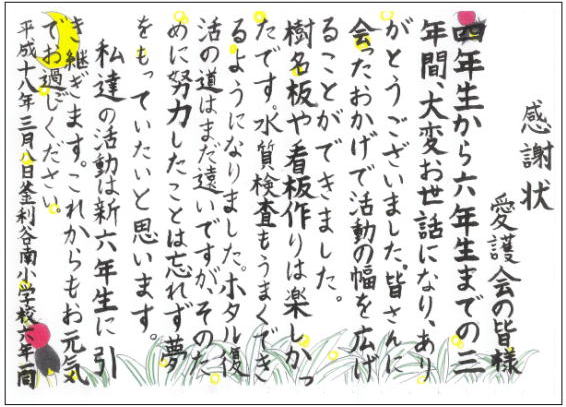 感謝状
愛護会の皆様
四年生から六年生までの三
年間、大変お世話になり、あり
がとうございました。皆さんに
会ったおかげで活動の幅を広げ
ることができました。
樹名板や看板作りは楽しかっ
たです。水質検査もうまくでき
るようになりました。ホタル復
活の道はまだ遠いですが、そのた
めに努力したことは忘れず夢
をもっていたいと思います。
私達の活動は新六年生に引
き継ぎます。これからもお元気
でお過ごしください。
平成十八年三月八日釜利谷南小学校六年一同